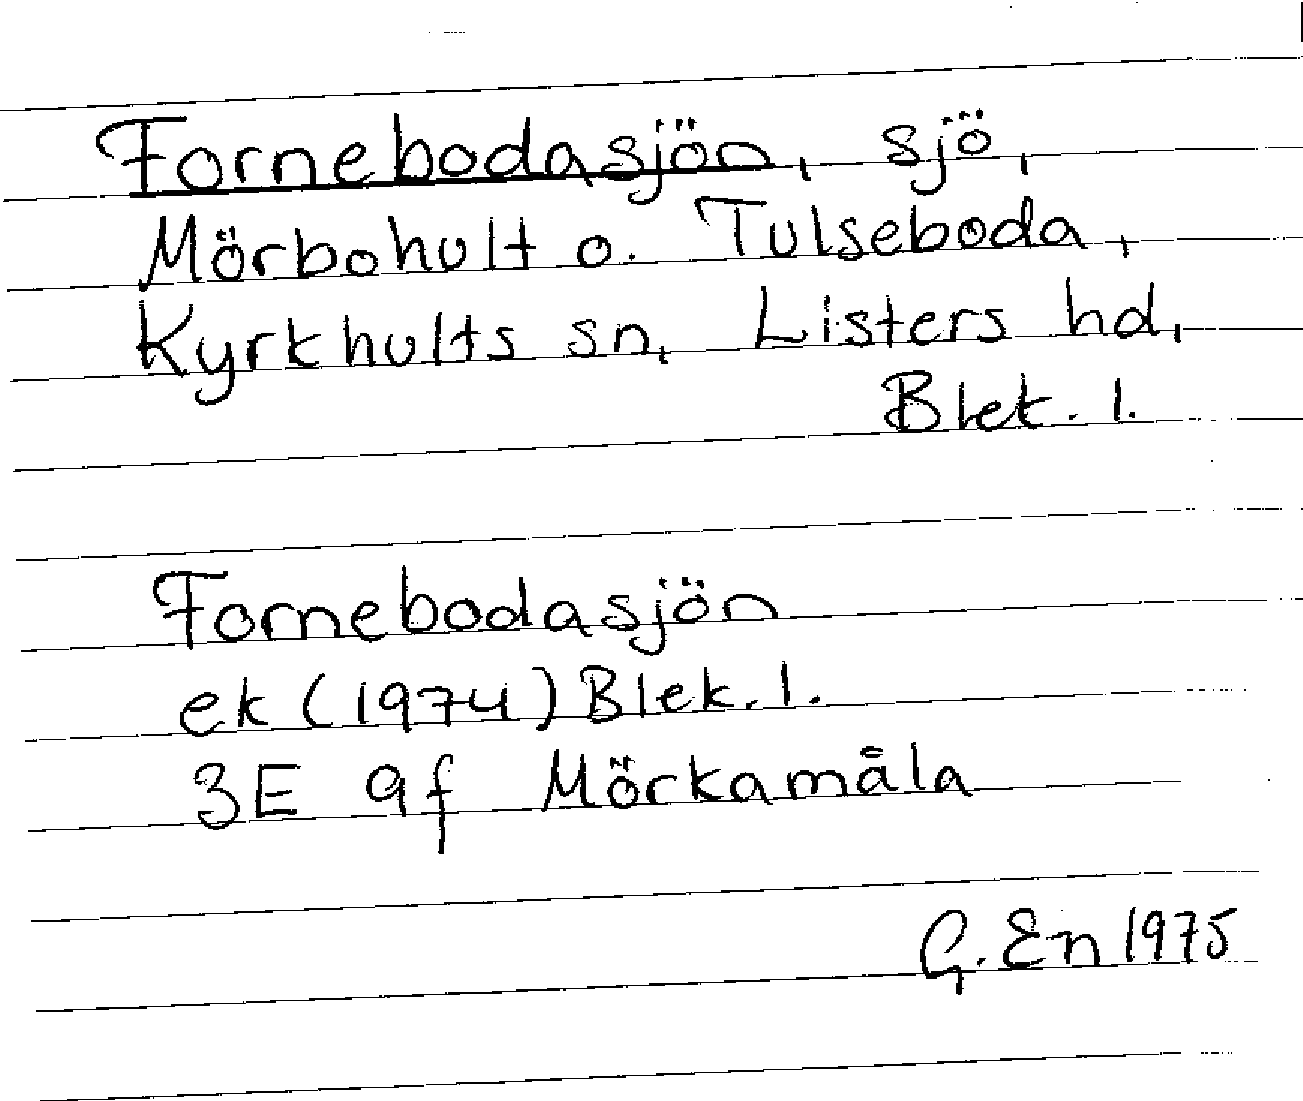 Fornebodasjön, sjö,
Mörboholt o. Tulseboda,
Kyrkhults sn, Listers hd,
Blek. l.
Fornebodasjön
ek (1974) Blek. l.
3E 9f Mörkamåla
G. En 1975